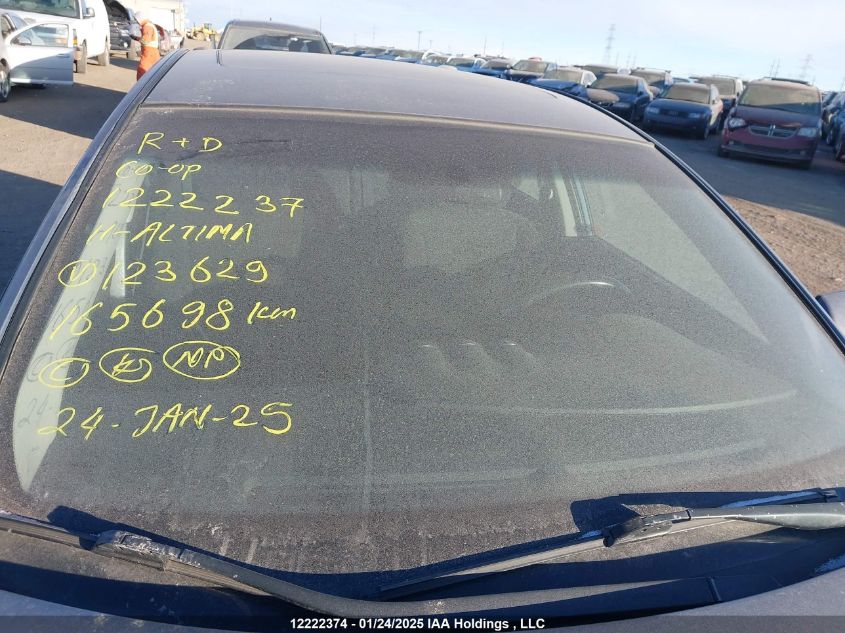 R+D
CO-OP
1222237
11-ALTIMA
V 123629
165698 km
C K NP
24-JAN-25
12222374 - 01/24/2025 IAA Holdings , LLC